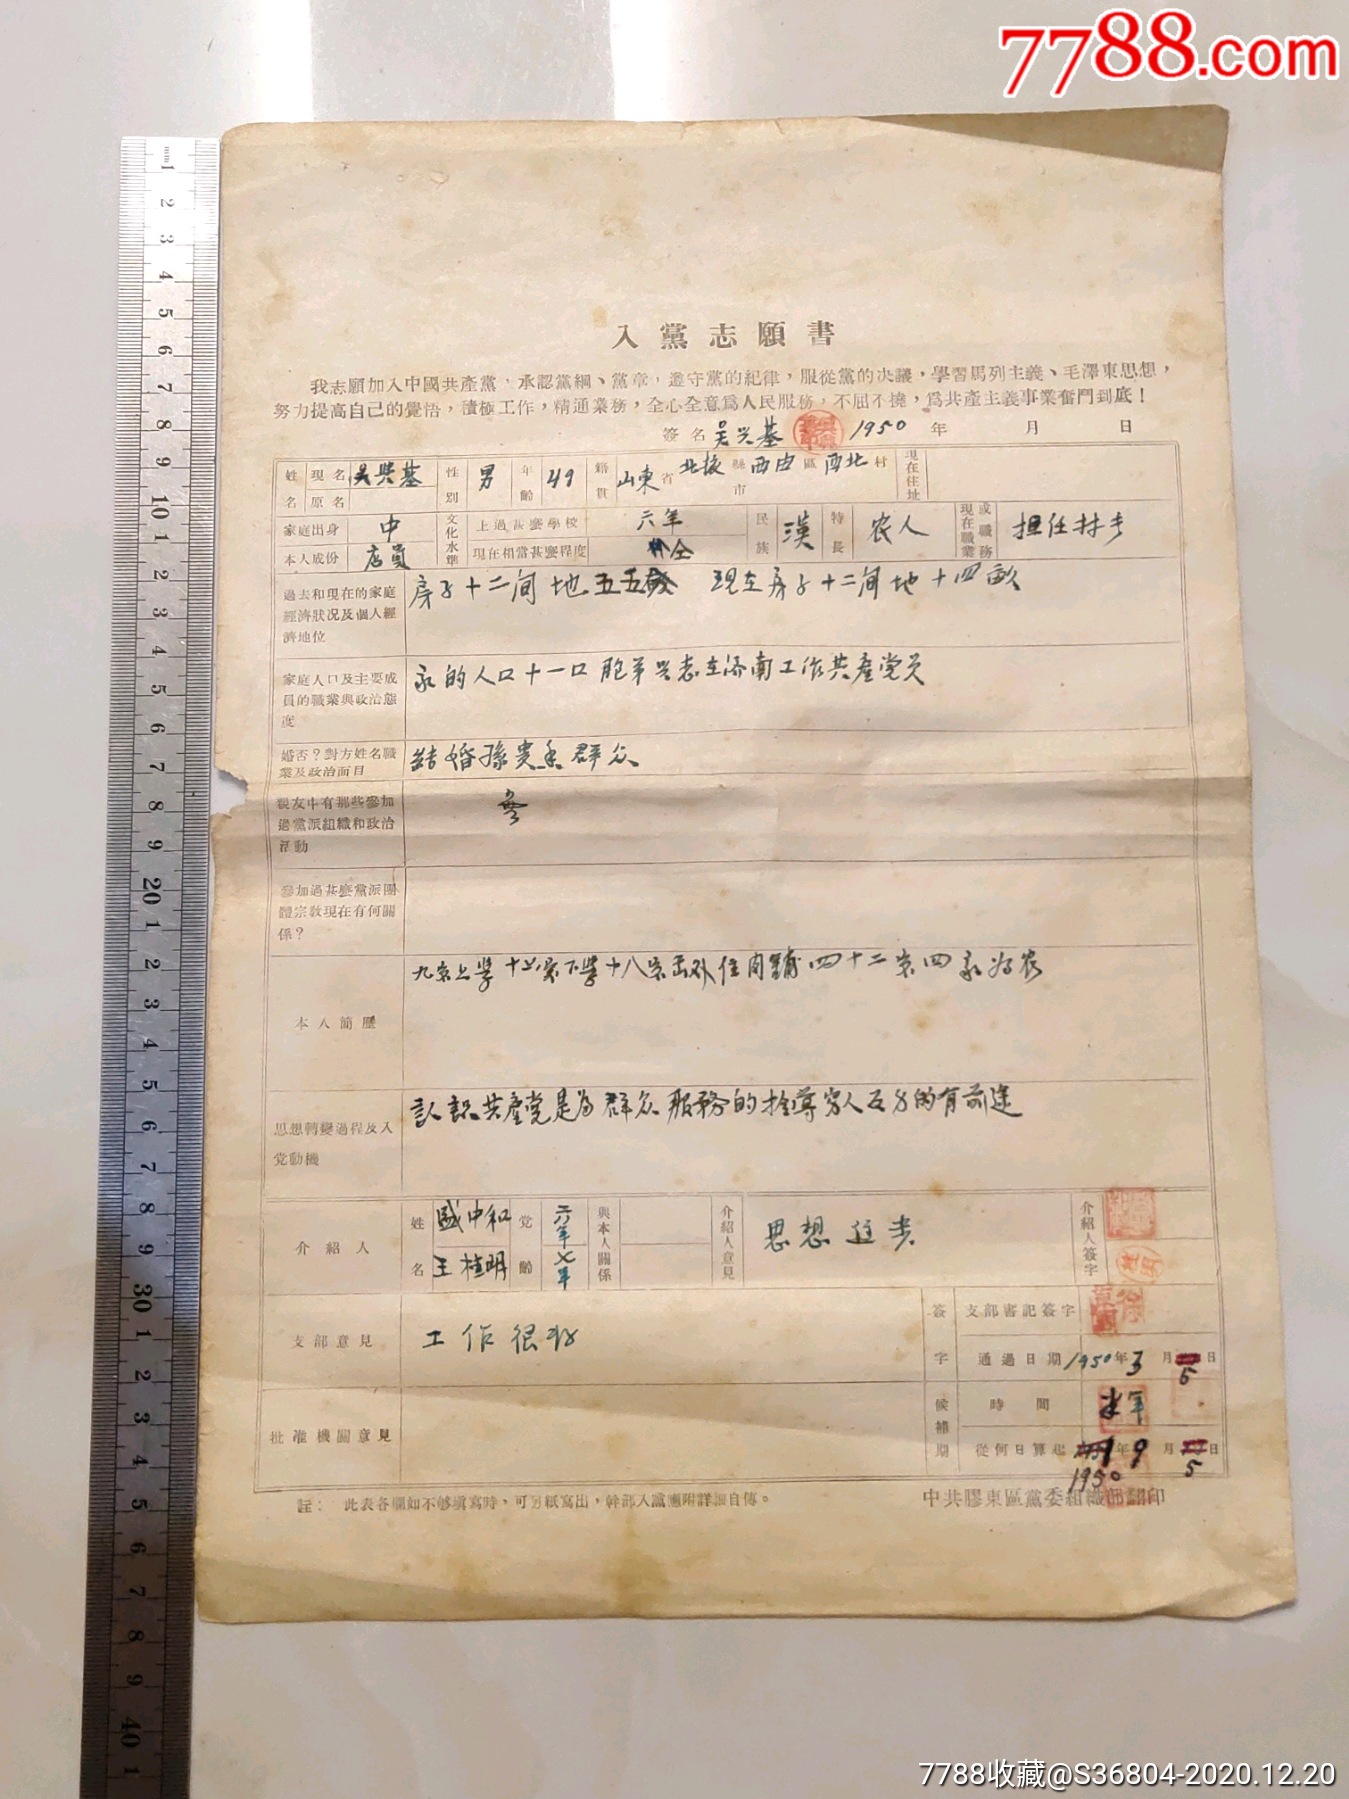 7788.com
入黨志願書
我志願加入中國共產黨，承認黨綱、黨章，遵守黨的紀律，服從黨的决議，學習馬列主義、毛澤東思想，
努力提高自己的覺悟，積極工作，精通業務，全心全意爲人民服務，不屈不撓，爲共產主義事業奮鬥到底！
簽名 吴兴基 1950 年 月 日
姓名 現名 吴兴基 性别 男 年齡 49 籍貫 山東省 北掖 縣市 西由 區 西北 村 現在住址
原名
家庭出身 中 文化水準 上過甚麼學校 六年 民族 漢 特長 农人 現在職業或職務 担任村
本人成份 店員 現在相當甚麼程度
過去和現在的家庭經濟狀况及個人經濟地位 房子十二间 地五 現在房子十二间地十四畝
家庭人口及主要成員的職業與政治態度 的人口十一口 胞弟兴志在济南工作共產党员
婚否？對方姓名職業及政治面目 結婚孫 群众
親友中有那些參加過黨派組織和政治活動
參加過甚麼黨派團體宗教現在有何關係？
本人简歷 九岁上学 下学十八岁 四十二岁
思想轉變過程及入党動機 認識共產党是为群众服務的 穷人 的有前途
介紹人 姓名 盛中和 党齡 六年 與本人關係 介紹人意見 思想 介紹人簽字
王桂明 七年
支部意見 工作很好 簽字 支部書記簽字
通過日期 1950年3月5日
批准機關意見 候補期 時間 半年
從何日算起 1950年9月5日
註： 此表各欄如不够填寫時，可另紙寫出，幹部入黨應附詳細自傳。
中共膠東區黨委組織部翻印
mm 1 2 3 4 5 6 7 8 9 10 1 2 3 4 5 6 7 8 9 20 1 2 3 4 5 6 7 8 9 30 1 2 3 4 5 6 7 8 9 40 1
7788收藏@S36804-2020.12.20